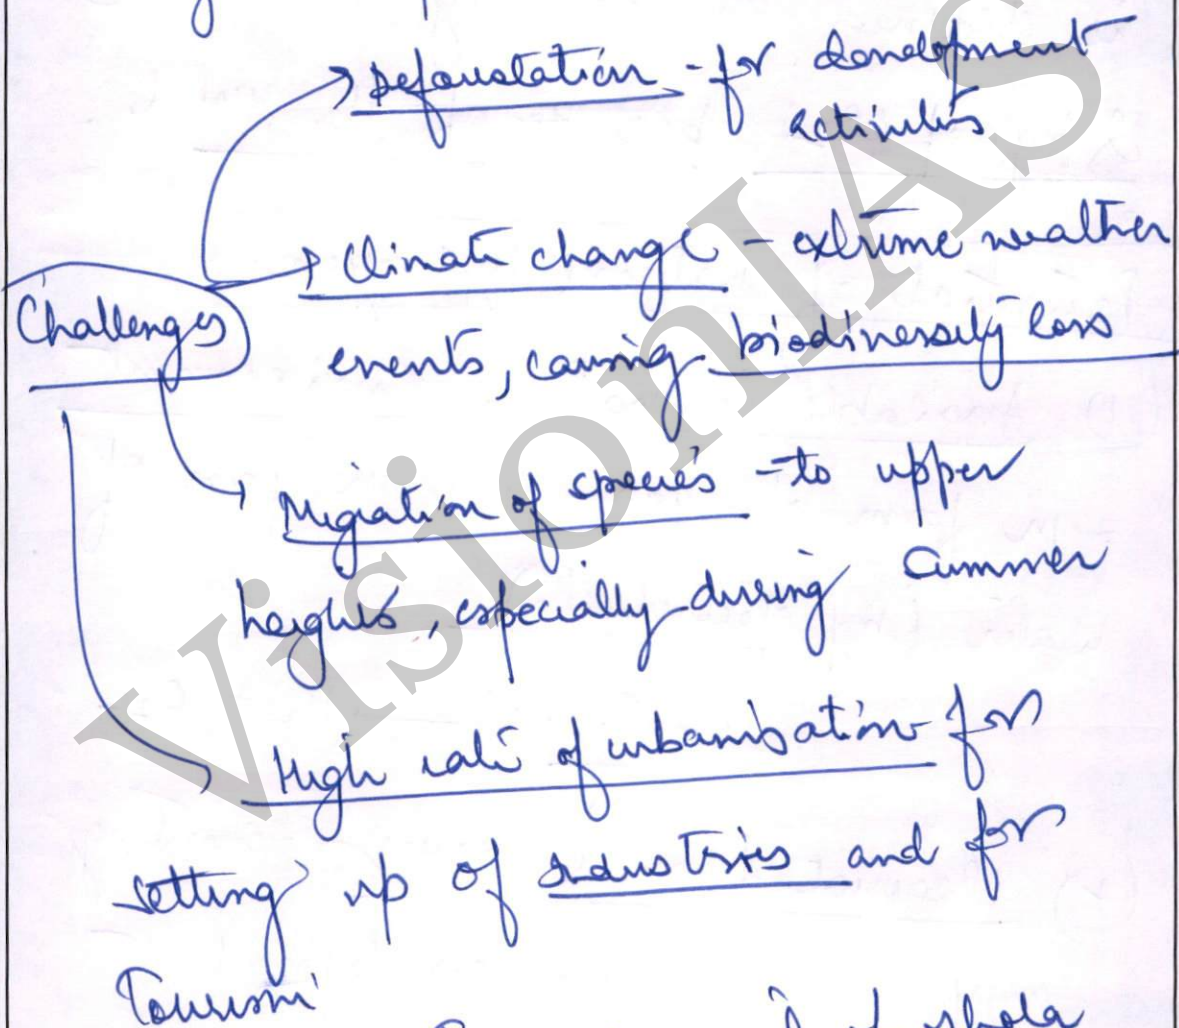 Deforestation - for development
activities
Climate change - extreme weather
Challenges
events, causing biodiversity loss
Migration of species - to upper
heights, especially during summer
High rate of urbanisation for
setting up of industries and for
Tourism
shola
VisionIAS